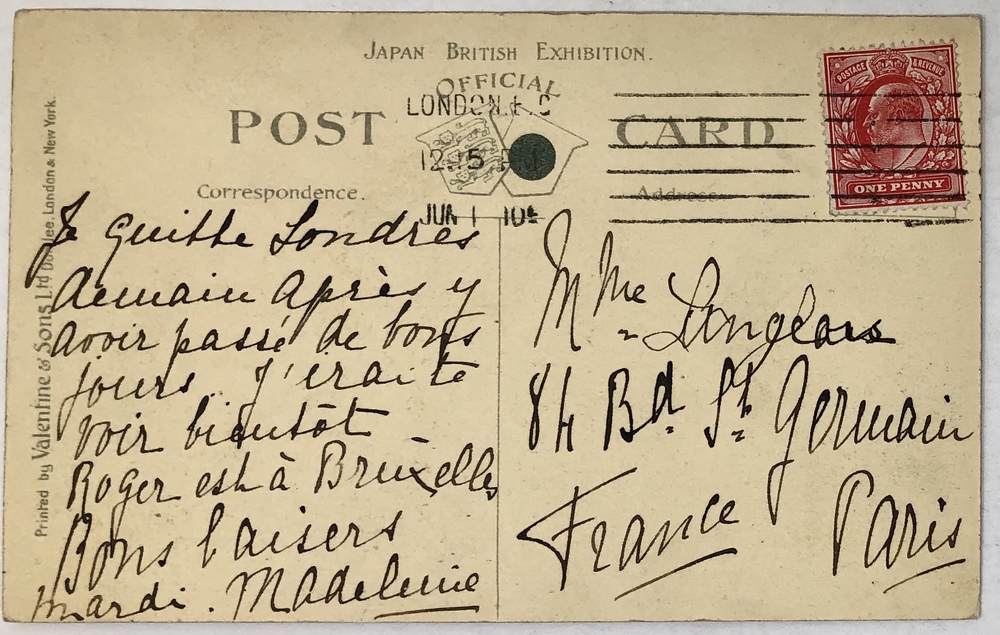 JAPAN BRITISH EXHIBITION.
OFFICIAL
POST CARD
LONDON. F.C
12.15 PM
JUN 1 10
POSTAGE & REVENUE
ONE PENNY
Correspondence.
Address
Printed by Valentine & Sons Ltd Dundee, London & New York.
Je quitte Londres
demain après y
avoir passé de bons
jours. J'irai te
voir bientôt
Roger est à Bruxelles
Bons baisers
mardi. Madeleine
Mme Langlois
84 Bd. St. Germain
France Paris